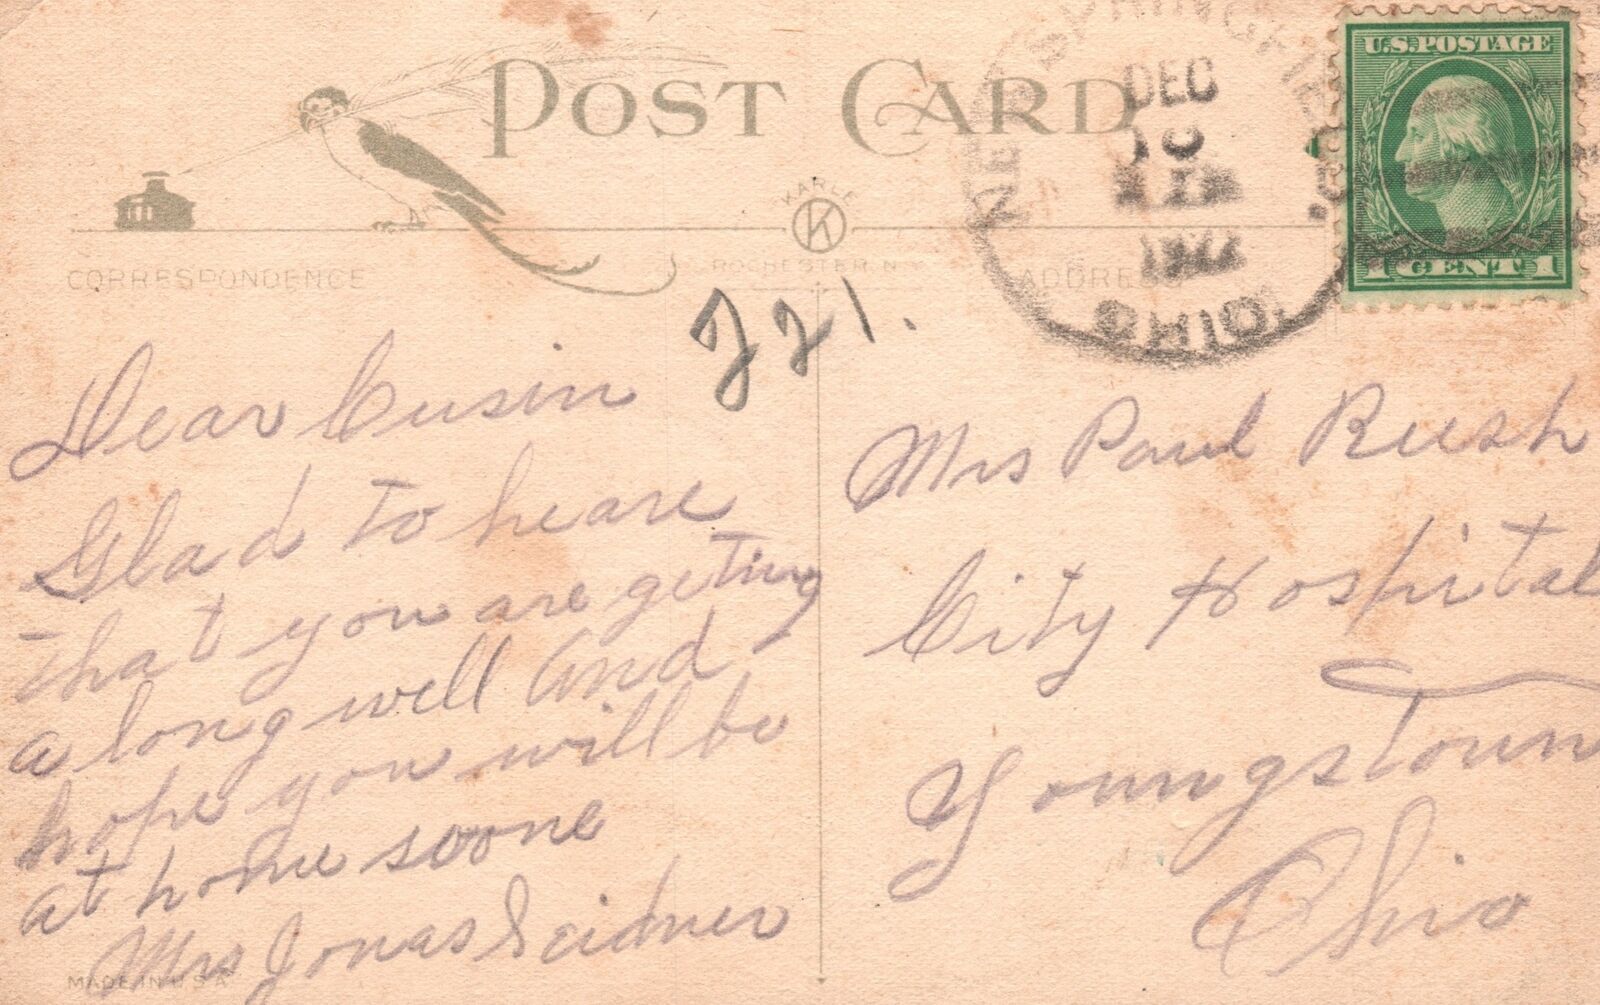 POST CARD
U.S. POSTAGE
1 CENT 1
NEW SPRINGFIELD
DEC
10
OHIO.
KARLE
K
ROCHESTER N.Y.
CORRESPONDENCE
ADDRESS
221.
Dear Cusin
Glad to heare
that you are geting
a long well and
hope you will be
at home soone
Mrs Jonas Seidner
Mrs Paul Rush
City Hospital
Youngstown
Ohio
MADE IN U S A